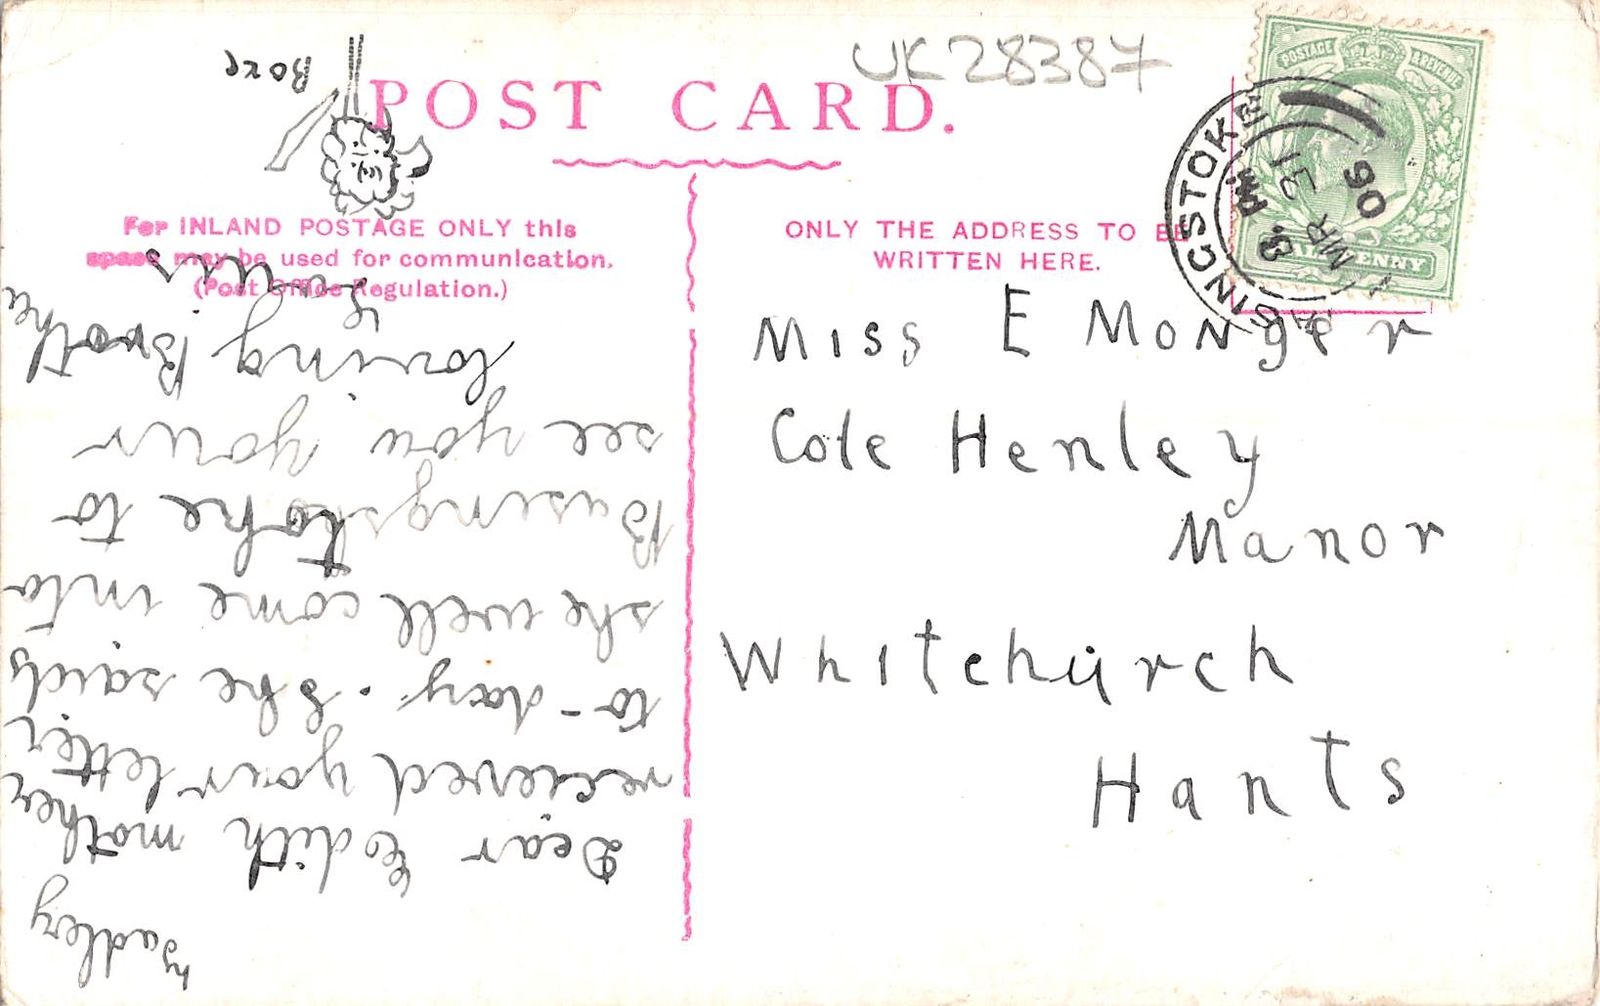 UK 28387
POST CARD.
For INLAND POSTAGE ONLY this
space may be used for communication.
(Post Office Regulation.)
ONLY THE ADDRESS TO BE
WRITTEN HERE.
POSTAGE & REVENUE
HALFPENNY
BASINGSTOKE
MR 31
06
Miss E Monger
Cole Henley
Manor
Whitchurch
Hants
Tadley
Dear Edith mother
recieved your letter
to-day. She said
she well come into
Basingstoke to
see you your
loving Brother